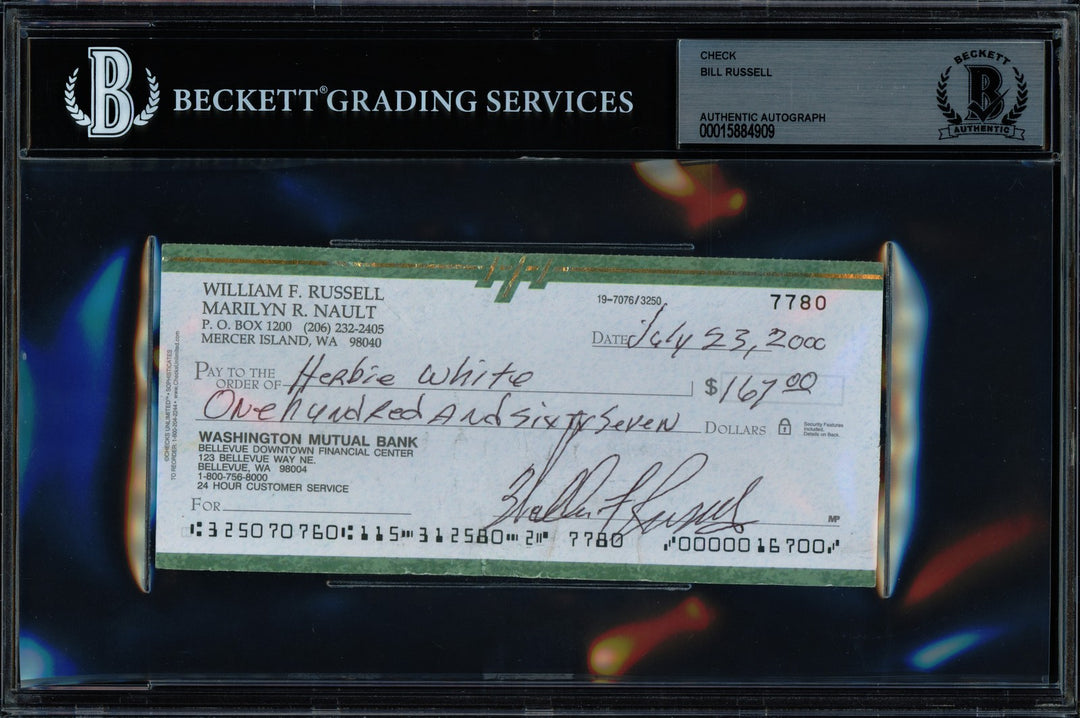 BECKETT® GRADING SERVICES
CHECK
BILL RUSSELL
AUTHENTIC AUTOGRAPH
00015884909
BECKETT
B
AUTHENTIC
WILLIAM F. RUSSELL
MARILYN R. NAULT
P. O. BOX 1200 (206) 232-2405
MERCER ISLAND, WA 98040
19-7076/3250
7780
DATE July 23, 2000
PAY TO THE
ORDER OF Herbie White
$167 00
One hundred And sixty Seven DOLLARS
Security Features
Included.
Details on Back.
WASHINGTON MUTUAL BANK
BELLEVUE DOWNTOWN FINANCIAL CENTER
123 BELLEVUE WAY NE.
BELLEVUE, WA 98004
1-800-756-8000
24 HOUR CUSTOMER SERVICE
FOR
William F Russell
MP
⑆325070760⑆115⑉312580⑉2⑈ 7780 ⑇0000016700⑇